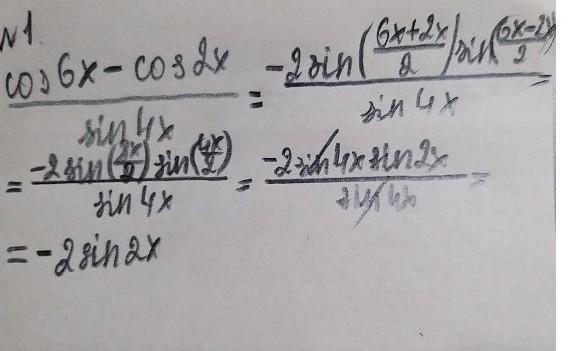 №1.
(cos6x - cos2x)/(sin4x) = (-2sin((6x+2x)/2)sin((6x-2x)/2))/(sin4x) =
= (-2sin((8x)/2)sin((4x)/2))/(sin4x) = (-2sin4x sin2x)/(sin4x) =
= -2sin2x